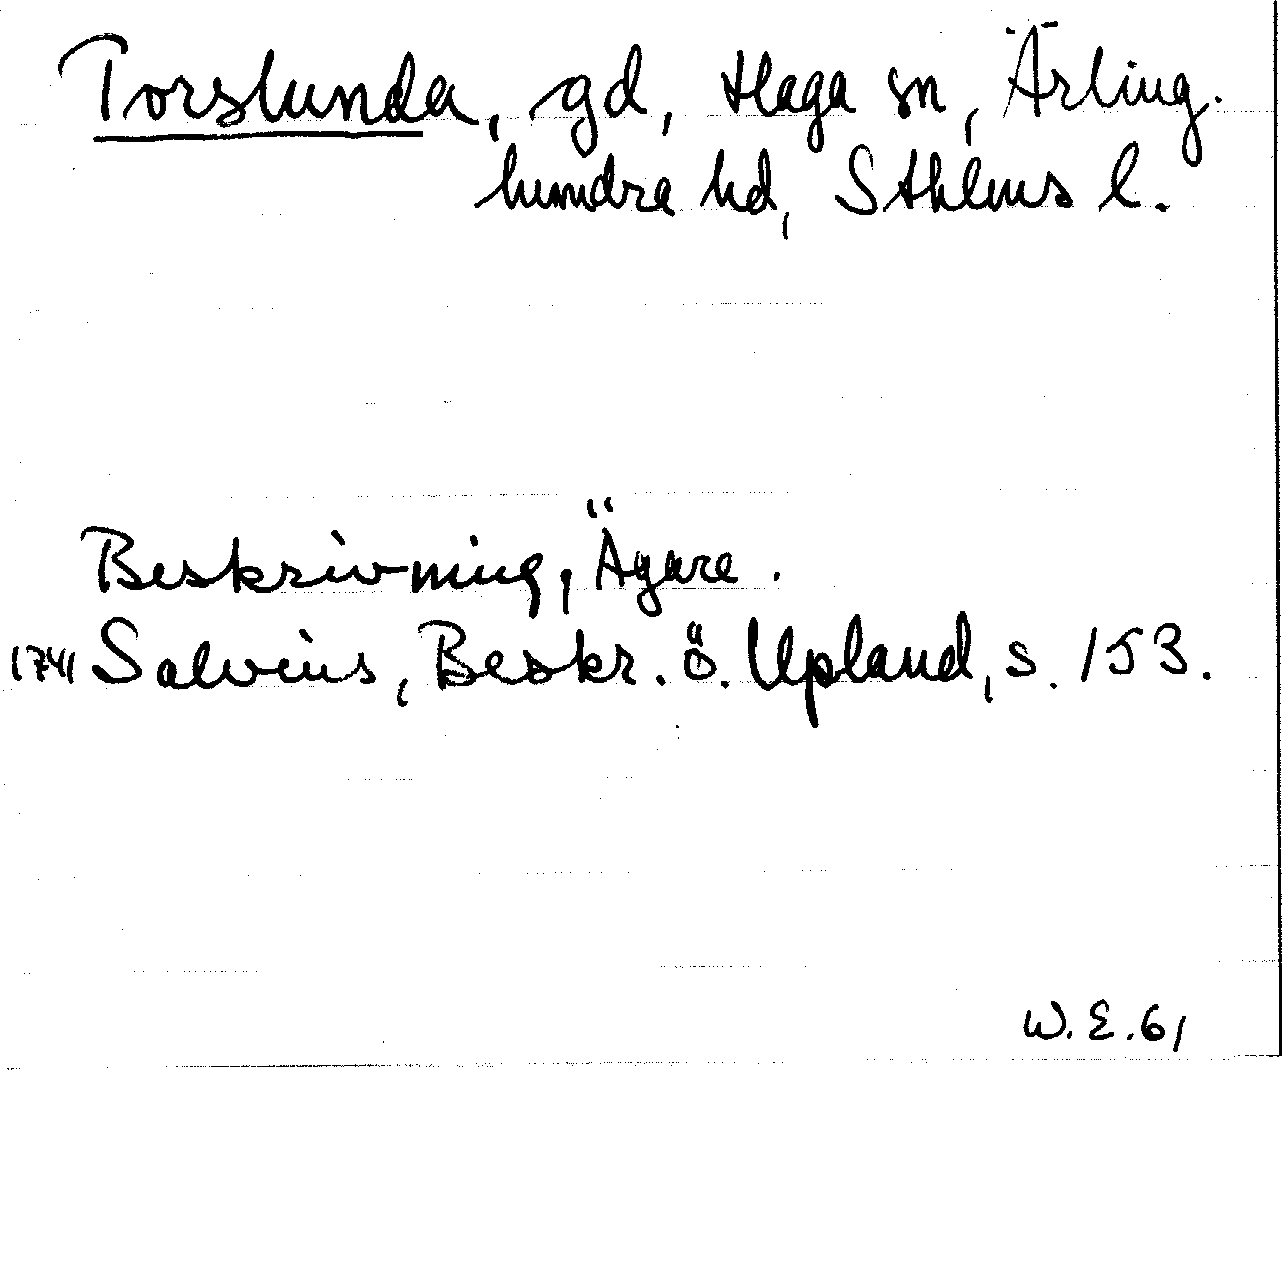 Torslunda, gd, Haga sn, Ärling.
hundra hd, Sthlms l.
Beskrivning, Ägare.
1741 Salvius, Beskr. ö. Upland, s. 153.
W.E.61